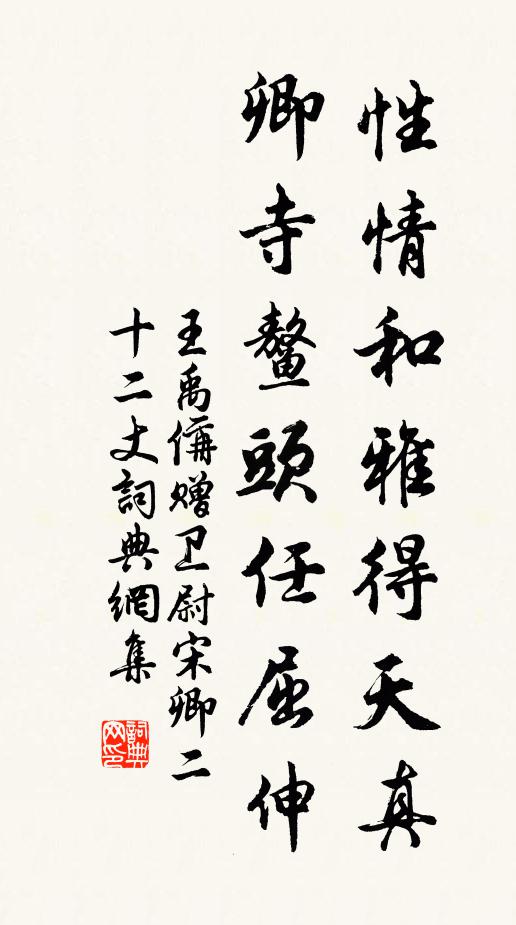 性情和雅得天真
卿寺鳌頭任屈伸
王禹偁赠卫尉宋卿二
十二丈詞典網集
詞典網印